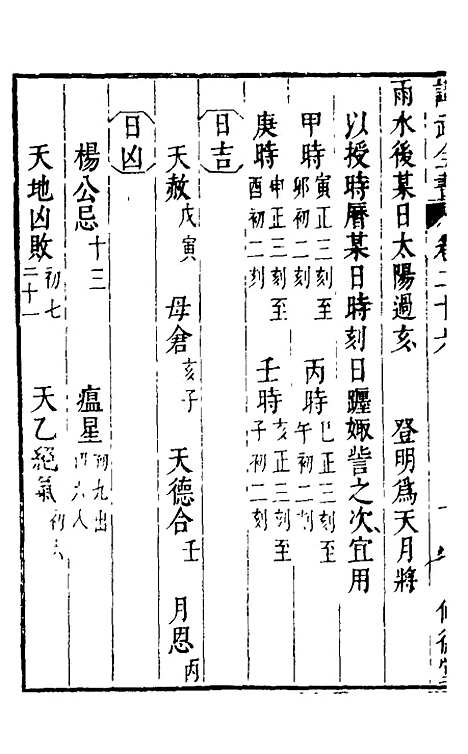 全書 卷二十六
雨水後某日太陽過亥 登明為天月將
以授時曆某日時刻日躔娵訾之次宜用
甲時寅正三刻至卯初二刻 丙時巳正三刻至午初二刻
庚時申正三刻至酉初二刻 壬時亥正三刻至子初二刻
日吉
天赦戊寅 母倉亥子 天德合壬 月恩丙
日凶
楊公忌十三 瘟星初九出 四六人
天地凶敗初七二十一 天乙絕氣初六